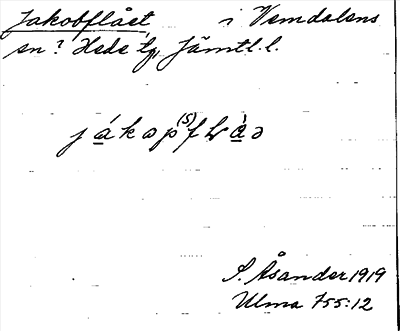 Jakobflået i Vemdalens
sn? Hede tg, Jämtl. l.
jákəp(s)flàə
S. Åsander 1919
Ulma 755:12